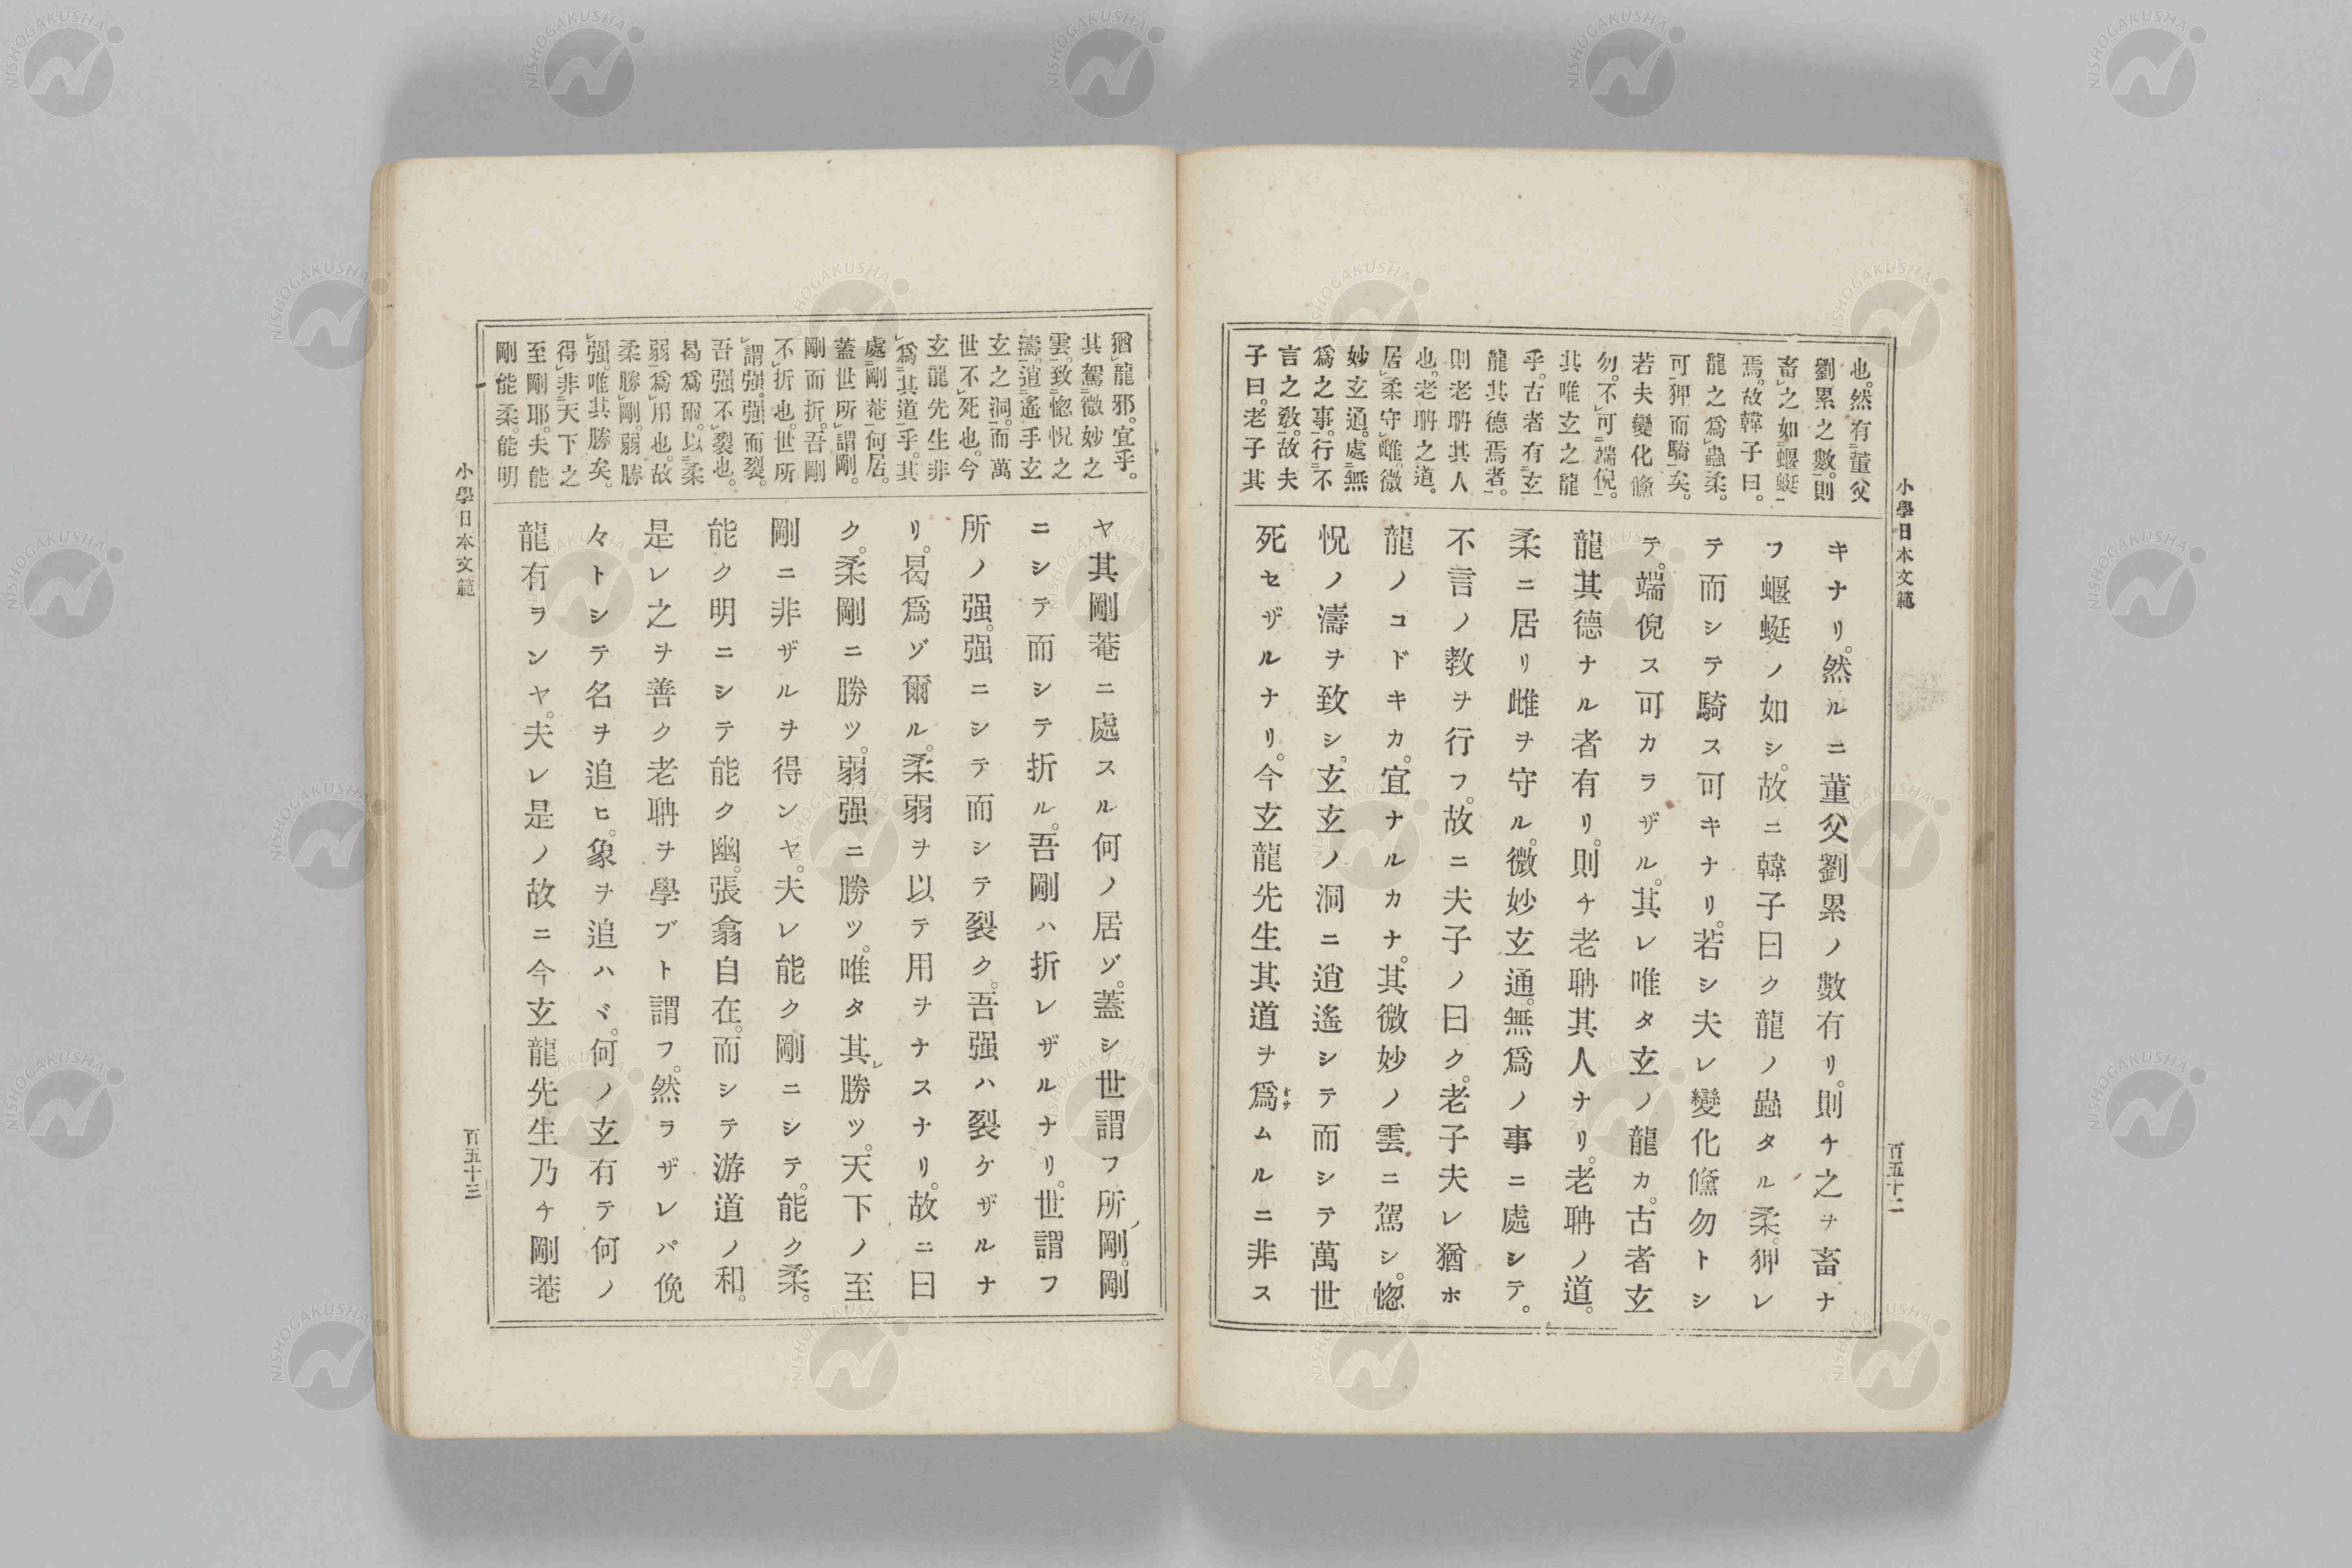 小學日本文範
百五十二
也。然有董父
劉累之數。則
畜之如蝘蜓
焉。故韓子曰。
龍之爲蟲柔。
可狎而騎矣。
若夫變化儵
勿。不可端倪。
其唯玄之龍
乎。古者有玄
龍其德焉者。
則老聃其人
也。老聃之道。
居柔守雌。微
妙玄通。處無
爲之事。行不
言之敎。故夫
子曰。老子其
キナリ。然ルニ董父劉累ノ數有リ。則チ之ヲ畜ナ
フ蝘蜓ノ如シ。故ニ韓子曰ク龍ノ蟲タル柔。狎レ
テ而シテ騎ス可キナリ。若シ夫レ變化儵勿トシ
テ。端倪ス可カラザル。其レ唯タ玄ノ龍カ。古者玄
龍其德ナル者有リ。則チ老聃其人ナリ。老聃ノ道。
柔ニ居リ雌ヲ守ル。微妙玄通。無爲ノ事ニ處シテ。
不言ノ教ヲ行フ。故ニ夫子ノ曰ク。老子夫レ猶ホ
龍ノコドキカ。宜ナルカナ。其微妙ノ雲ニ駕シ。惚
怳ノ濤ヲ致シ。玄玄ノ洞ニ逍遙シテ而シテ萬世
死セザルナリ。今玄龍先生其道ヲ爲ムルニ非ス
猶龍邪。宜乎。
其駕微妙之
雲。致惚怳之
濤。逍遙手玄
玄之洞。而萬
世不死也。今
玄龍先生非
爲其道乎。其
處剛菴何居。
蓋世所謂剛。
剛而折。吾剛
不折也。世所
謂强。强而裂。
吾强不裂也。
曷爲爾。以柔
弱爲用也。故
柔勝剛。弱勝
强。唯其勝矣。
得非天下之
至剛耶。夫能
剛能柔。能明
ヤ其剛菴ニ處スル何ノ居ゾ。蓋シ世謂フ所ノ剛。剛
ニシテ而シテ折ル。吾剛ハ折レザルナリ。世謂フ
所ノ强。强ニシテ而シテ裂ク。吾强ハ裂ケザルナ
リ。曷爲ゾ爾ル。柔弱ヲ以テ用ヲナスナリ。故ニ曰
ク。柔剛ニ勝ツ。弱强ニ勝ツ。唯タ其レ勝ツ。天下ノ至
剛ニ非ザルヲ得ンヤ。夫レ能ク剛ニシテ。能ク柔。
能ク明ニシテ能ク幽。張翕自在。而シテ游道ノ和。
是レ之ヲ善ク老聃ヲ學ブト謂フ。然ラザレパ俛
々トシテ名ヲ追ヒ。象ヲ追ハヾ。何ノ玄有テ何ノ
龍有ヲンヤ。夫レ是ノ故ニ今玄龍先生乃チ剛菴
小學日本文範
百五十三